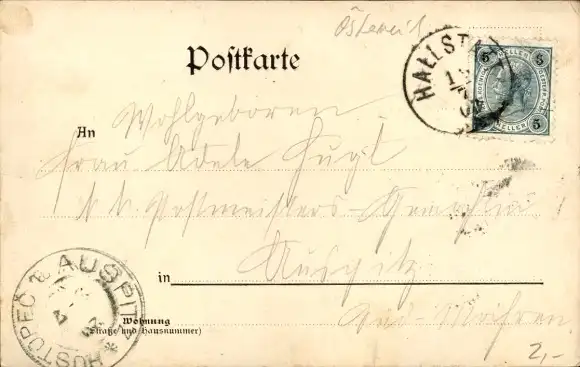 Österreich
Postkarte
HALLSTA
5 HELLER 5
HELLER 5
An Wohlgeboren
Frau Adele
k. k. Postmeisters-Gemahlin
in Auspitz
Wohnung
(Straße und Hausnummer)
Süd-Mähren
AUSPITZ * HUSTOPEČ
2,-